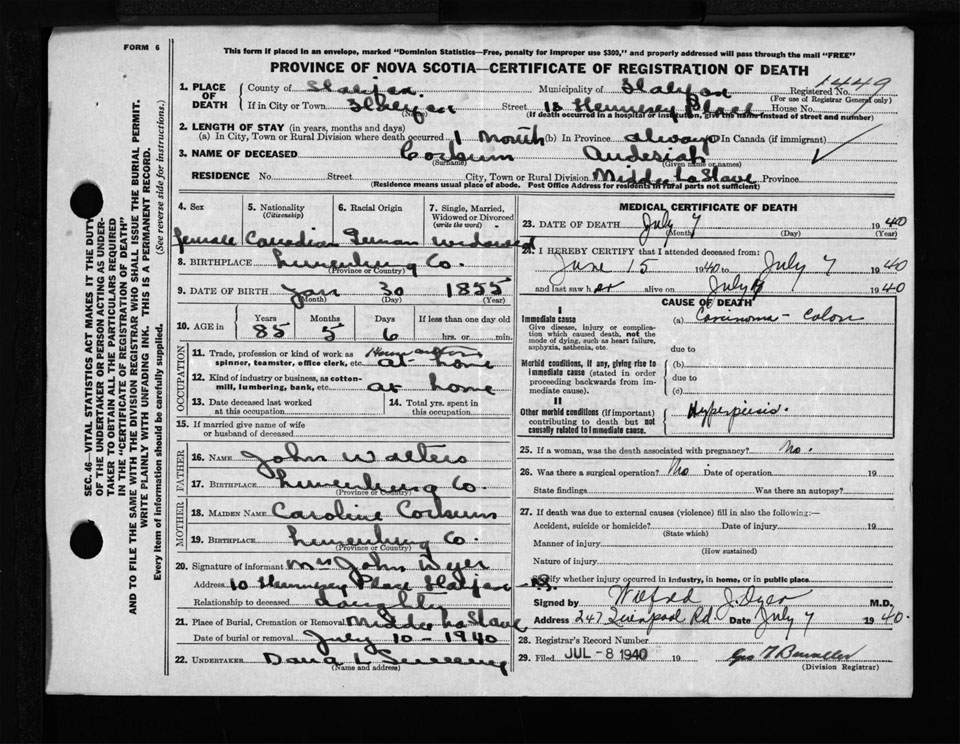 FORM 6
This form if placed in an envelope, marked "Dominion Statistics—Free, penalty for improper use $300," and properly addressed will pass through the mail "FREE"
PROVINCE OF NOVA SCOTIA—CERTIFICATE OF REGISTRATION OF DEATH
1. PLACE OF DEATH
County of Halifax Municipality of Halifax Registered No. 1449
(For use of Registrar General only)
If in City or Town Halifax Street 18 Hennesey Place House No.
(Name) (If death occurred in a hospital or institution, give the name instead of street and number)
2. LENGTH OF STAY (in years, months and days)
(a) In City, Town or Rural Division where death occurred 1 month (b) In Province always In Canada (if immigrant)
3. NAME OF DECEASED Corkum
(Surname) (Given name or names)
RESIDENCE No. Street City, Town or Rural Division Middle LaHave Province
(Residence means usual place of abode. Post Office Address for residents in rural parts not sufficient)
4. Sex 5. Nationality (Citizenship) 6. Racial Origin 7. Single, Married, Widowed or Divorced (write the word)
female Canadian German widowed
8. BIRTHPLACE Lunenburg Co.
(Province or Country)
9. DATE OF BIRTH Jan 30 1855
(Month) (Day) (Year)
10. AGE in Years Months Days If less than one day old
85 5 6 hrs. or min.
OCCUPATION
11. Trade, profession or kind of work as spinner, teamster, office clerk, etc. at home
12. Kind of industry or business, as cotton-mill, lumbering, bank, etc. at home
13. Date deceased last worked at this occupation
14. Total yrs. spent in this occupation
15. If married give name of wife or husband of deceased
FATHER
16. NAME John Walters
17. BIRTHPLACE Lunenburg Co.
(Province or Country)
MOTHER
18. MAIDEN NAME Caroline Corkum
19. BIRTHPLACE Lunenburg Co.
(Province or Country)
20. Signature of informant Mrs John
Address 10 Hennesey Place Halifax N.S.
Relationship to deceased daughter
21. Place of Burial, Cremation or Removal Middle LaHave
Date of burial or removal July 10 - 1940
22. UNDERTAKER
(Name and address)
MEDICAL CERTIFICATE OF DEATH
23. DATE OF DEATH July 7 1940
(Month) (Day) (Year)
24. I HEREBY CERTIFY that I attended deceased from:
June 15 1940 to July 7 1940
and last saw her alive on July 1940
CAUSE OF DEATH
I
Immediate cause (a) Carcinoma - Colon
Give disease, injury or complication which caused death, not the mode of dying, such as heart failure, asphyxia, asthenia, etc.
due to
Morbid conditions, if any, giving rise to immediate cause (stated in order proceeding backwards from immediate cause).
(b)
due to
(c)
II
Other morbid conditions (if important) contributing to death but not causally related to immediate cause. Hyperpiesis.
25. If a woman, was the death associated with pregnancy? No.
26. Was there a surgical operation? No Date of operation 19
State findings Was there an autopsy?
27. If death was due to external causes (violence) fill in also the following:—
Accident, suicide or homicide? Date of injury 19
(State which)
Manner of injury
(How sustained)
Nature of injury
Specify whether injury occurred in industry, in home, or in public place
Signed by Wilfred J. Dyer M.D.
Address 247 Quinpool Rd. Date July 7 1940.
28. Registrar's Record Number
29. Filed JUL - 8 1940 19
(Division Registrar)
SEC. 46—VITAL STATISTICS ACT MAKES IT THE DUTY
OF THE UNDERTAKER OR PERSON ACTING AS UNDER-
TAKER TO OBTAIN ALL THE PARTICULARS REQUIRED
IN THE "CERTIFICATE OF REGISTRATION OF DEATH"
AND TO FILE THE SAME WITH THE DIVISION REGISTRAR WHO SHALL ISSUE THE BURIAL PERMIT.
WRITE PLAINLY WITH UNFADING INK. THIS IS A PERMANENT RECORD.
Every item of information should be carefully supplied. (See reverse side for instructions.)